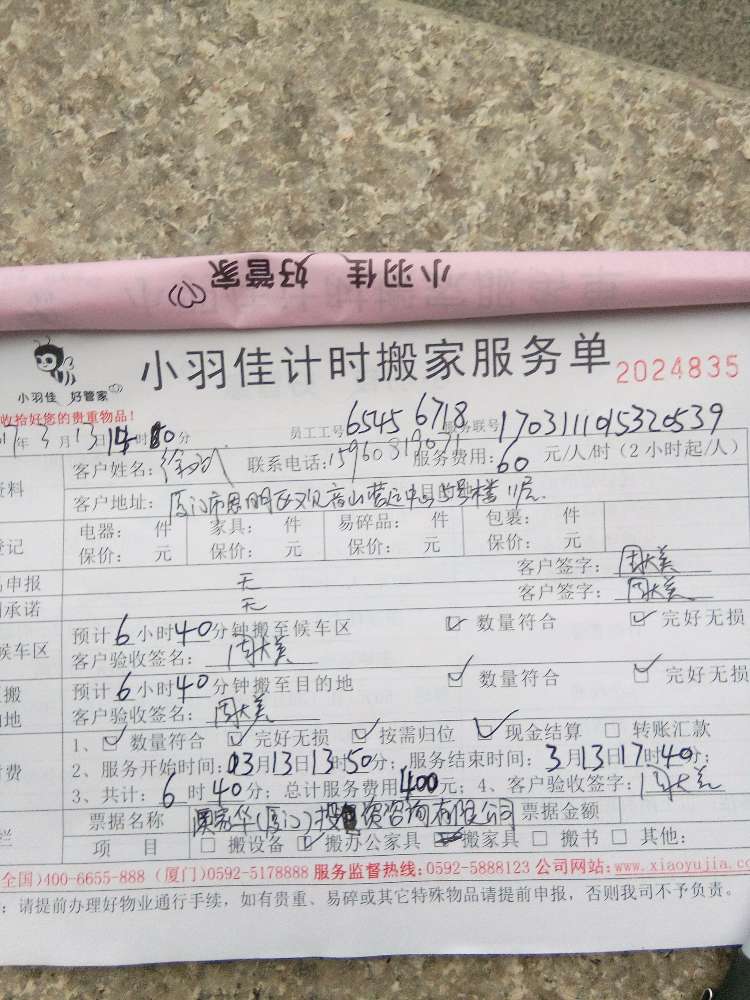 小羽佳 好管家
小羽佳 好管家
小羽佳计时搬家服务单 2024835
收拾好您的贵重物品！
年3月13日14时00分 员工工号 65456718 服务联号 1703111015320539
资料 客户姓名： 联系电话：15960319071 服务费用：60元/人/时（2小时起/人）
客户地址：厦门市思明区观音山营运中心 号楼11层
登记 电器： 件 家具： 件 易碎品： 件 包裹： 件
保价： 元 保价： 元 保价： 元 保价： 元
申报 无 客户签字：周大美
承诺 无 客户签字：周大美
候车区 预计6小时40分钟搬至候车区 ☑ 数量符合 ☑ 完好无损
客户验收签名：周大美
搬 预计6小时40分钟搬至目的地 ☑ 数量符合 ☑ 完好无损
地 客户验收签名：周大美
1、☑ 数量符合 ☑ 完好无损 ☑ 按需归位 ☑ 现金结算 □ 转账汇款
费 2、服务开始时间：03月13日13时50分；服务结束时间：3月13日17时40分；
3、共计：6时40分；总计服务费用400元；4、客户验收签字：周大美
栏 票据名称 （厦门）投资咨询有限公司 票据金额
项目 □ 搬设备 ☑ 搬办公家具 搬家具 □ 搬书 □ 其他：
全国)400-6655-888 (厦门)0592-5178888 服务监督热线:0592-5888123 公司网站:www.xiaoyujia.com
：请提前办理好物业通行手续，如有贵重、易碎或其它特殊物品请提前申报，否则我司不予负责。